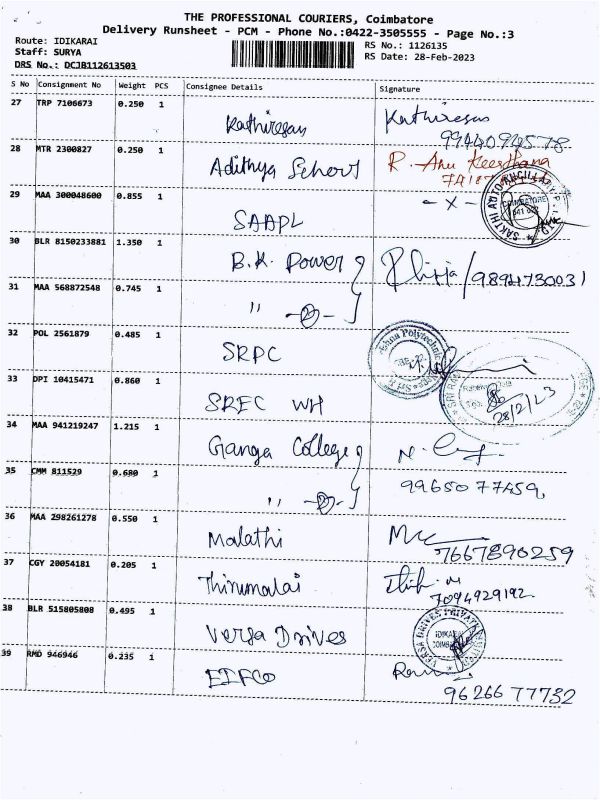 THE PROFESSIONAL COURIERS, Coimbatore
Delivery Runsheet - PCM - Phone No.:0422-3505555 - Page No.:3
Route: IDIKARAI
Staff: SURYA
DRS No.: DCJB112613503
RS No.: 1126135
RS Date: 28-Feb-2023
S No Consignment No Weight PCS Consignee Details Signature
27 TRP 7106673 0.250 1 Kathiresan Kathiresan
9944094578
28 MTR 2300827 0.250 1 Adithya School R. Anu Keerthana
29 MAA 300048600 0.855 1 SAAPL - x -
SAKTHI AUTO ANCILLARY P. LTD
COIMBATORE
641 022
30 BLR 8150233881 1.350 1 B.K. Power /9894730031
31 MAA 568872548 0.745 1 " -②-
32 POL 2561879 0.485 1 SRPC
33 DPI 10415471 0.860 1 SREC WH
28/2/23
34 MAA 941219247 1.215 1 Ganga College
35 CMM 811529 0.680 1 " -②- 9965077459,
36 MAA 298261278 0.550 1 Malathi
7667890259
37 CGY 20054181 0.205 1 Thirumalai
7094929192
38 BLR 515805808 0.495 1 Versa Drives
VERSA DRIVES PRIVATE LIMITED
IDIKARAI
39 RMD 946946 0.235 1 EIFCO
9626677732